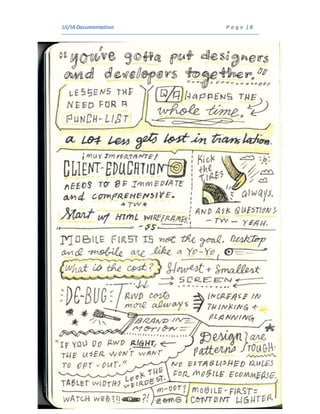 UI/IA Documentation
Page | 8
"you've gotta put designers
and developers together."
LESSENS THE
NEED FOR A
PUNCH-LIST
Q/A HAPPENS THE
whole time.
a lot less gets lost in translation.
¡MUY IMPORTANTE!
CLIENT-EDUCATION
NEEDS TO BE IMMEDIATE
and COMPREHENSIVE.
*TW*
Start w/ HTML WIREFRAMES!
-JS-
Kick
the
TIRES
always.
AND ASK QUESTIONS
-TW- YEAH.
MOBILE FIRST IS not the goal. Desktop
and mobile are like a Yo-Yo,
What is the cost?
Slowest + Smallest
SCREEN
DE-BUG:
RWD costs
more always
INCREASE IN
THINKING +
PLANNING
BRAND IN
MOTION
"IF YOU DO RWD RIGHT,
THE USER WON'T WANT
TO OPT-OUT."
Design
patterns
are
TOUGH.
NO ESTABLISHED RULES
FOR MOBILE ECOMMERCE.
TABLET WIDTHS
LOOK THE
WEIRDEST.
WATCH WEB?!
?!
M-DOT?
ZOMG
MOBILE-FIRST=
CONTENT LIGHTER